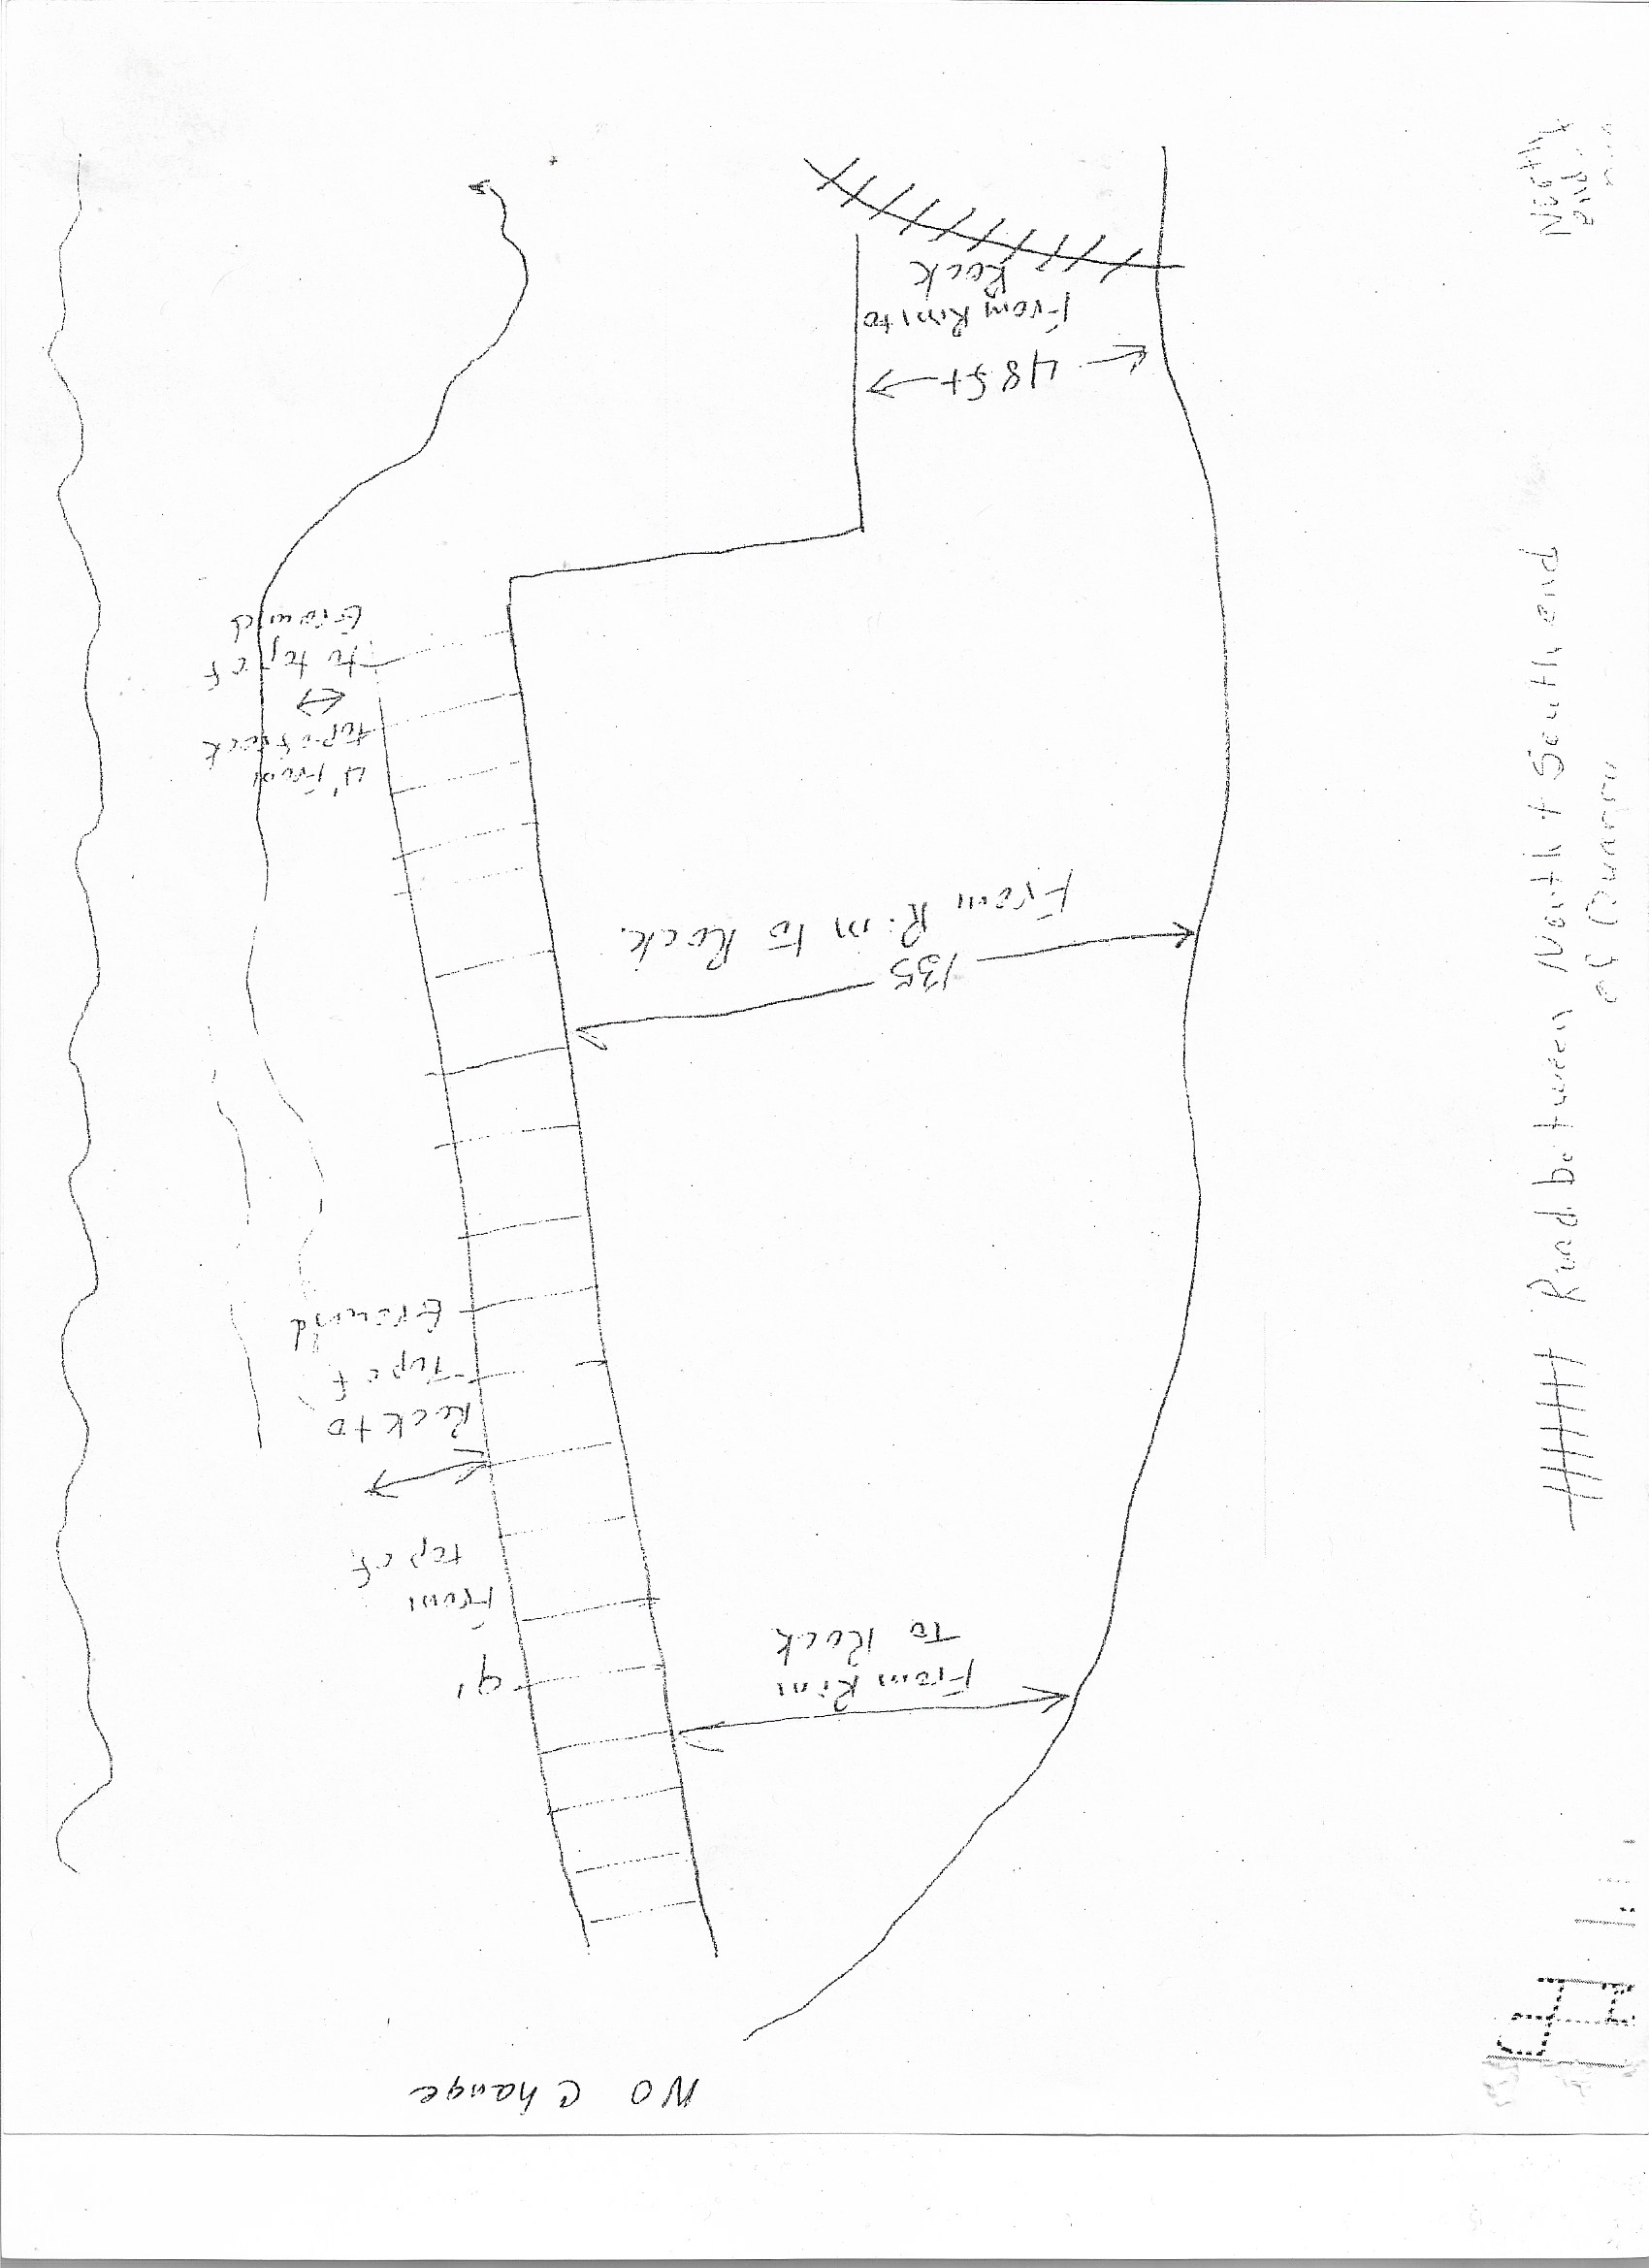 NO Change
From Rim
To Rock
9'
From
top of
Rock to
Top of
Ground
135
From Rim to Rock
4' From
top of rock
to top of
Ground
48 ft
From Rim to
Rock
Road between North + South end
of Quarry
North